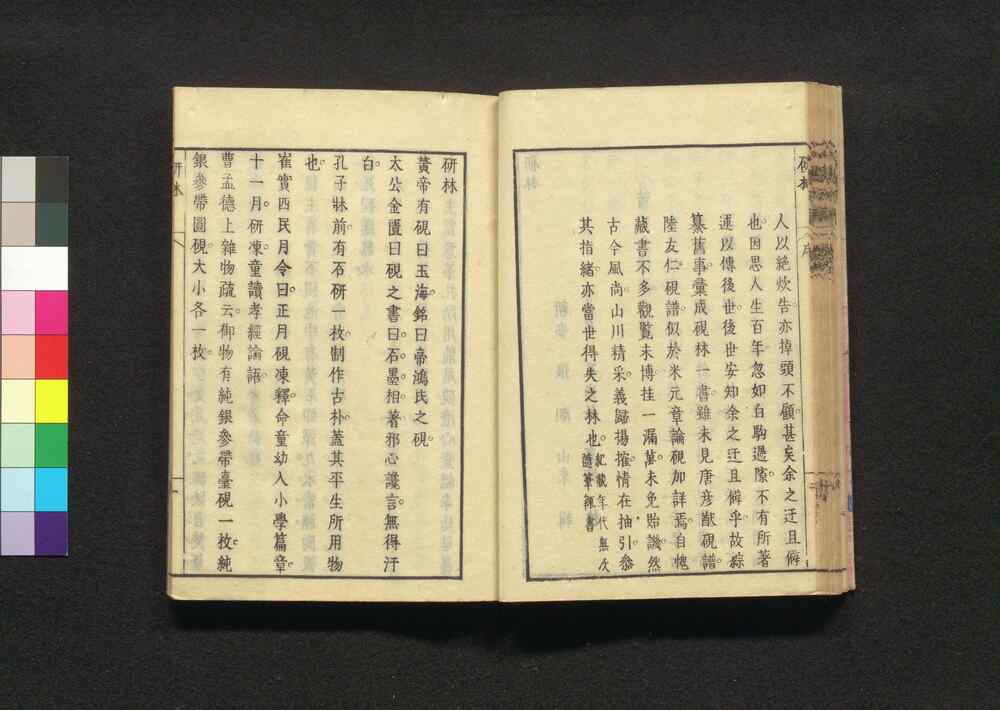 研林
序
人以絶炊告。亦掉頭不顧。甚矣余之迂且僻
也。因思人生百年。忽如白駒過隙。不有所著
述。以傳後世。後世安知余之迂且僻乎。故綜
纂舊事。彙成硯林一書。雖未見唐彦猷硯譜。
陸友仁硯譜。似於米元章論硯加詳焉。自愧
藏書不多。觀覧未博。挂一漏萬。未免貽譏。然
古今風尚。山川精采。義歸揚搉。情在抽引。參
其指緒。亦當世得失之林也。記載年代無次
隨筆雜書
研林
黄帝有硯曰玉海。銘曰帝鴻氏之硯。
太公金匱曰。硯之書曰。石墨相著。邪心讒言。無得汙
白。
孔子牀前有石研一枚。制作古朴。蓋其平生所用物
也。
崔寔四民月令曰。正月硯凍釋。命童幼入小學篇章。
十一月研凍。童讀孝經論語。
曹孟德上雜物疏云。御物有純銀參帶臺硯一枚。純
銀參帶圓硯。大小各一枚。
研林
一